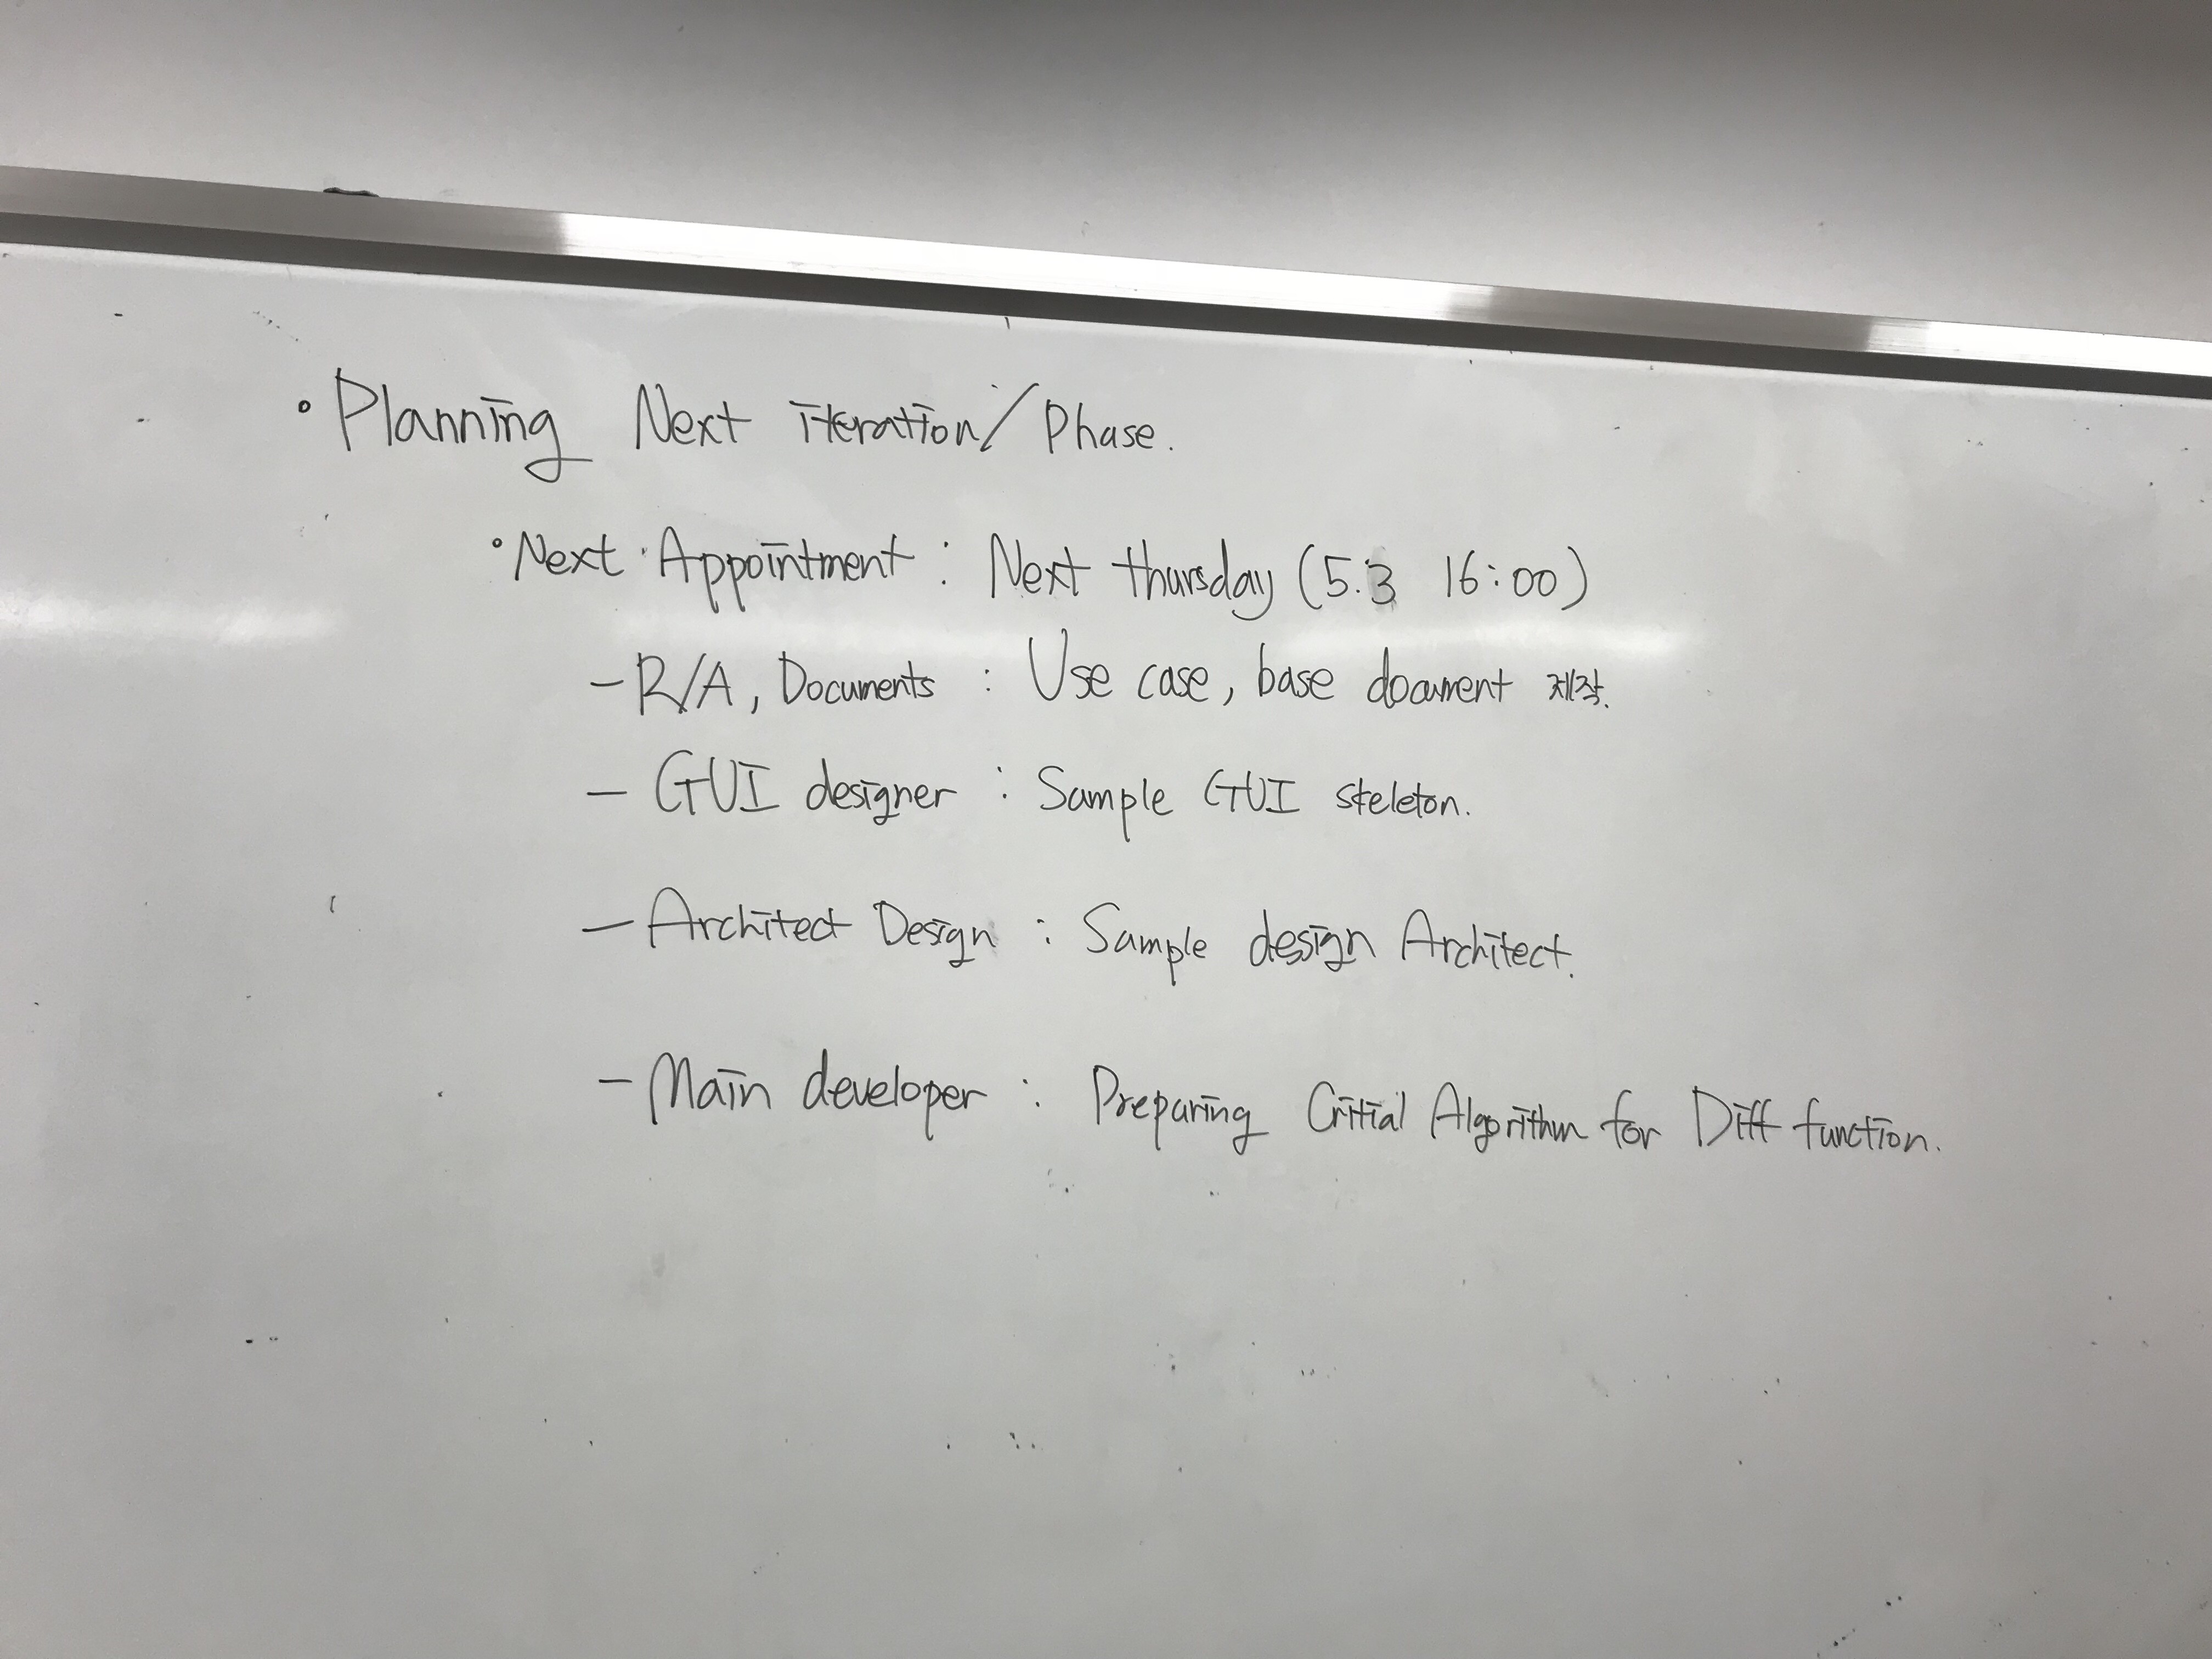 • Planning Next iteration/Phase.
• Next Appointment : Next thursday (5.3 16:00)
- R/A, Documents : Use case, base document 제작.
- GUI designer : Sample GUI skeleton.
- Architect Design : Sample design Architect.
- Main developer : Preparing Critial Algorithm for Diff function.